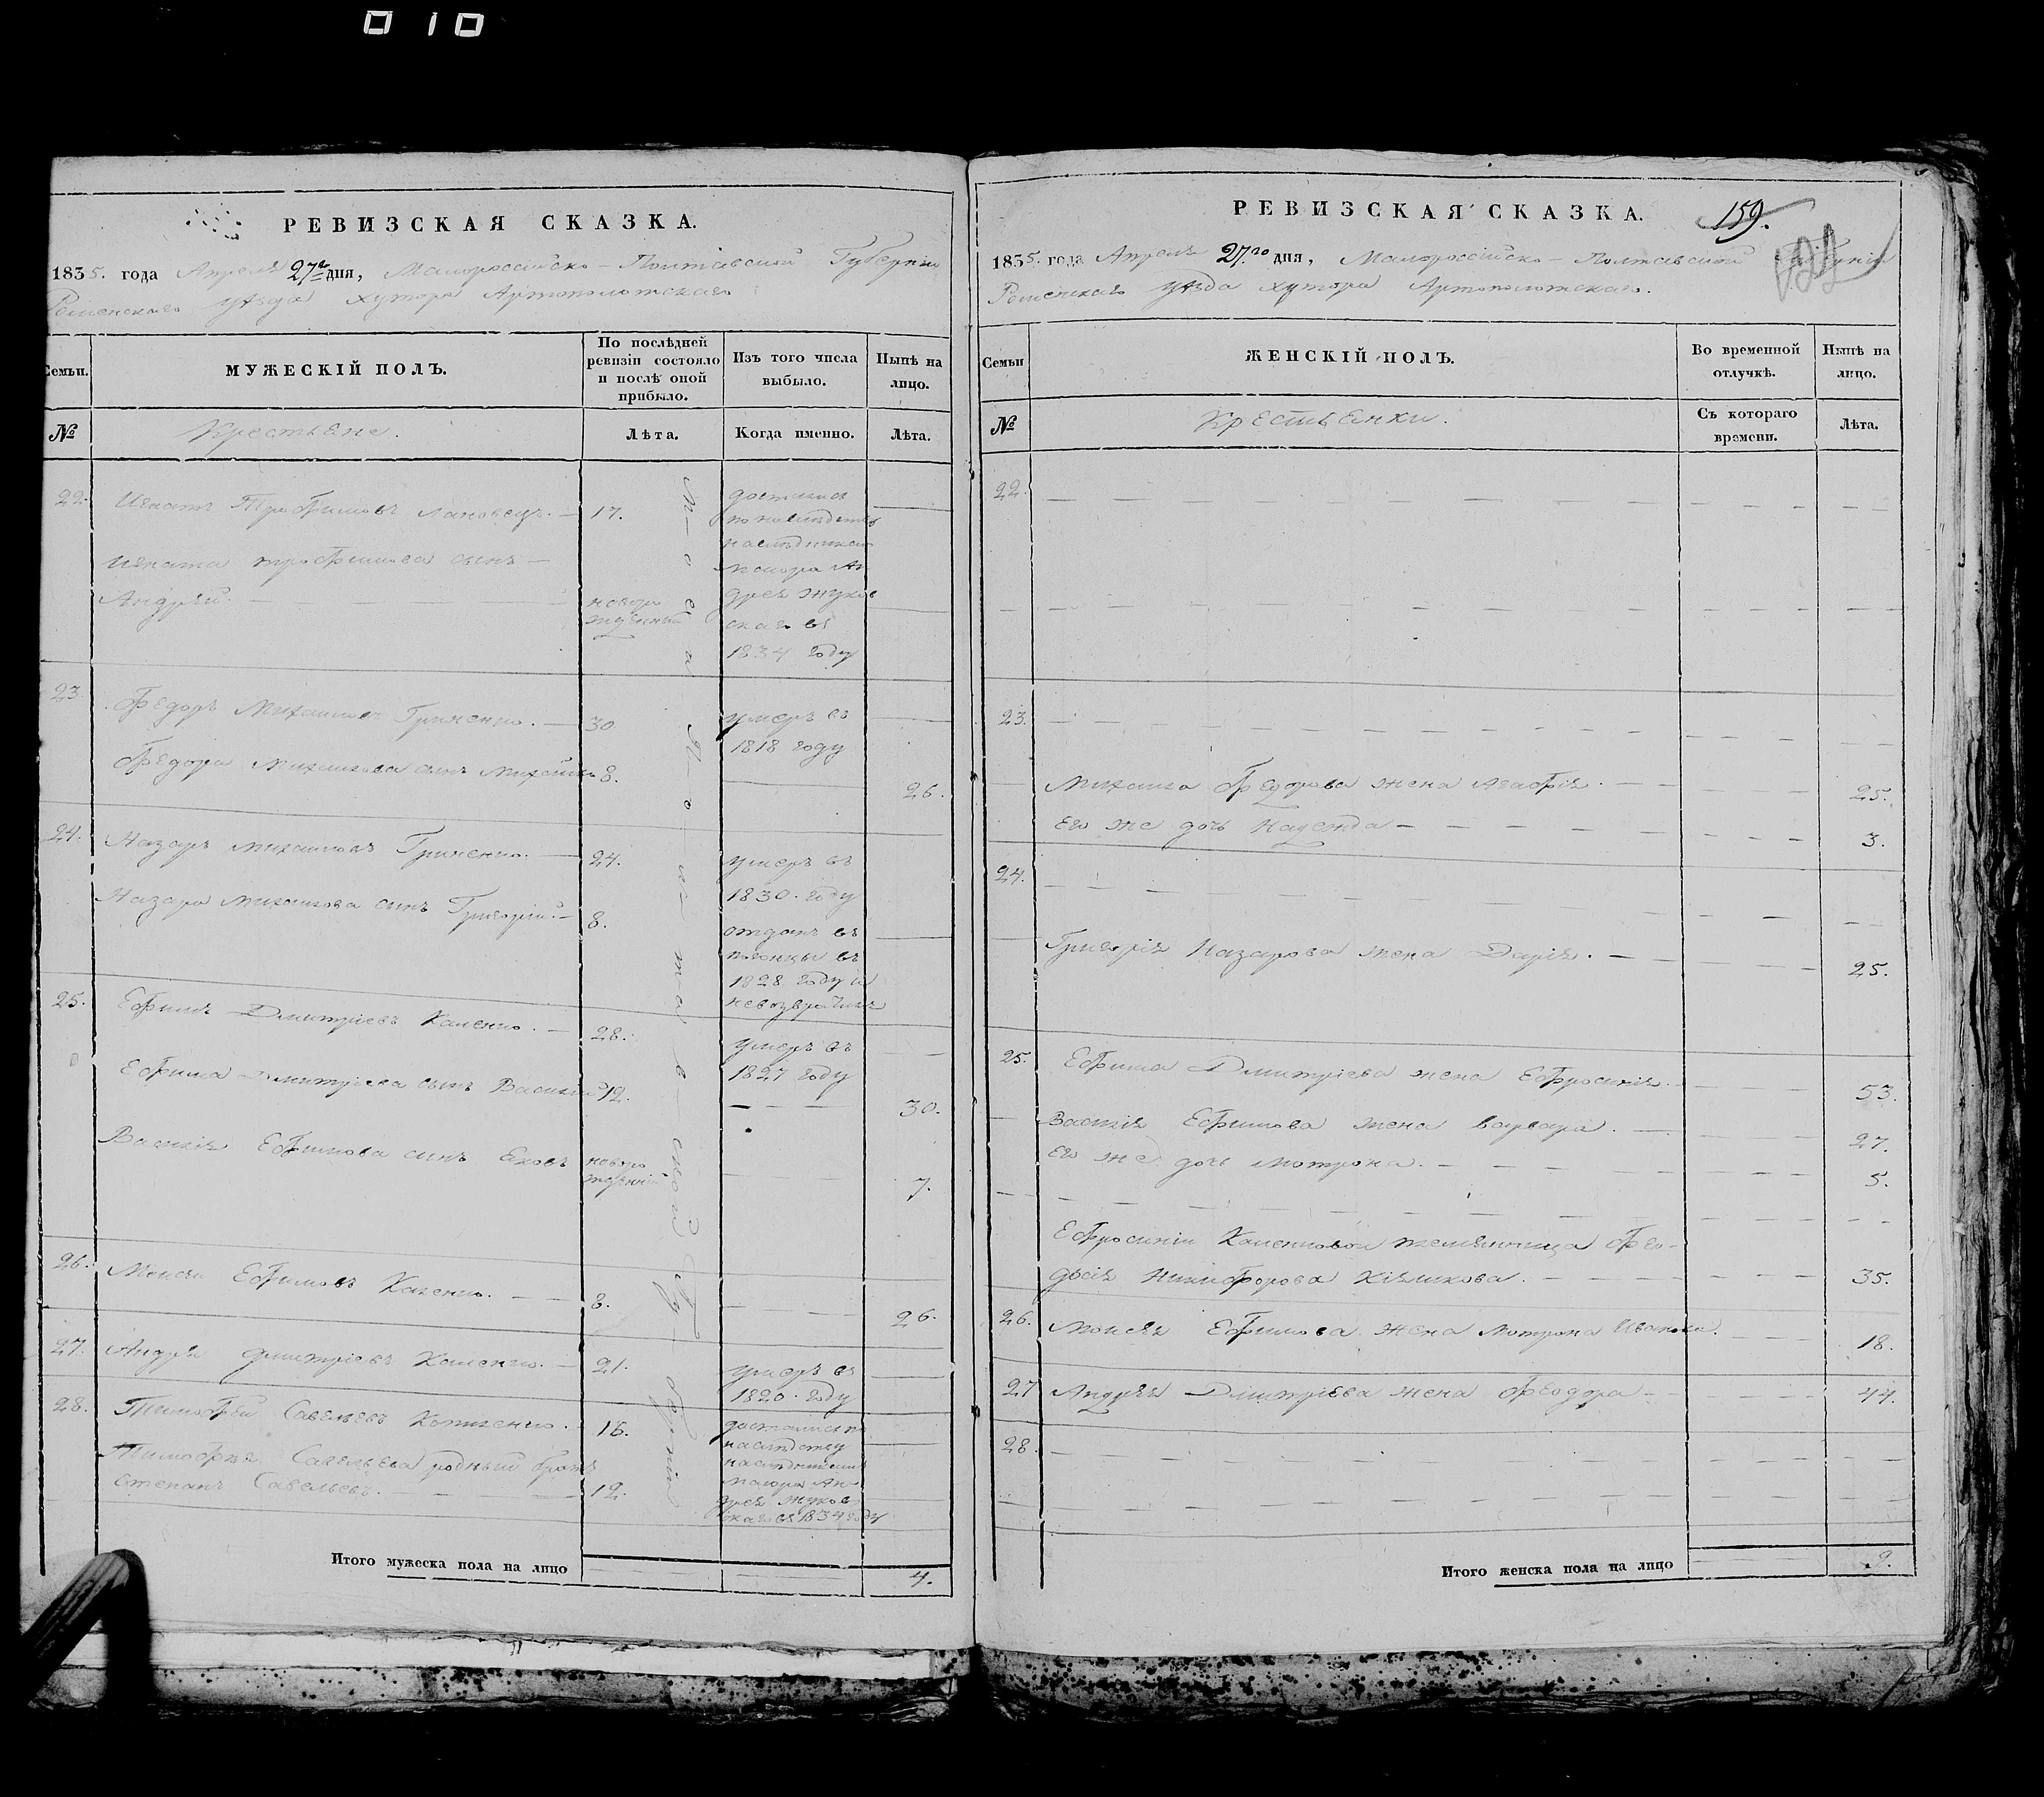 010
РЕВИЗСКАЯ СКАЗКА.
1835. года Апреля 27го дня, Малороссійско-Полтавской Губерніи
Роменскаго уѣзда хутора Артополотскаго
Семьи.
МУЖЕСКІЙ ПОЛЪ.
По послѣдней ревизіи состояло и послѣ оной прибыло.
Изъ того числа выбыло.
Нынѣ на лицо.
№
Крестьяне.
Лѣта.
Когда именно.
Лѣта.
22. Игнатъ Трофимовъ Лановецъ. — 17.
достался
по наслѣдству
наслѣдникам
маіора Ан
дрея Жуков
скаго въ
1834 году
Игната Трофимова сынъ —
Андрей. — новоро
жденный
23. Федоръ Михайловъ Гриненко. — 30
умеръ въ
1818 году
Федора Михайлова сынъ Михайла 8. — 26.
24. Назаръ Михайловъ Гриненко. — 24.
умеръ въ
1830. году
Назара Михайлова сынъ Григорій. — 8.
отданъ въ
погонцы въ
1828 году и
невозвратился
25. Ефимъ Дмитріевъ Каменко. — 28.
умеръ въ
1827 году
Ефима Дмитріева сынъ Василій 12. — — — 30.
Василія Ефимова сынъ Яковъ новоро
жденній — — 7.
26. Моисей Ефимовъ Каменко. — — 8. — — — 26.
27. Андрей Дмитріевъ Каменко. — 21.
умеръ въ
1820. году
28. Тимофей Савельевъ Котченко. — 15.
достался по
наслѣдству
наслѣдникам
маіора Ан-
дрея Жуков
скаго въ 1834 году
Тимофея Савельева родный братъ
Степанъ Савельевъ. — — 12.
Полтавской Губерніи
Итого мужеска пола на лицо — — 4.
РЕВИЗСКАЯ СКАЗКА.
159.
1835. года Апреля 27.го дня, Малороссійско-Полтавской Губерніи
Роменскаго уѣзда хутора Артополотскаго.
Семьи
ЖЕНСКІЙ ПОЛЪ.
Во временной отлучкѣ.
Нынѣ на лицо.
№
Крестьянки.
Съ котораго времени.
Лѣта.
22.
23.
Михаила Федорова жена Агафія. — 25.
Его же дочь Надежда — 3.
24.
Григорія Назарова жена Дарія. — 25.
25. Ефима Дмитріева жена Ефросинія. — 53.
Василія Ефимова жена Варвара. — 27.
Его же дочь Мотрона. — 5.
Ефросиніи Каменковой племянница Фео-
досія Никифорова — 35.
26. Моисея Ефимова жена Мотрона Иванова. — 18.
27 Андрея Дмитріева жена Феодора — 44.
28.
Итого женска пола на лицо — 9.